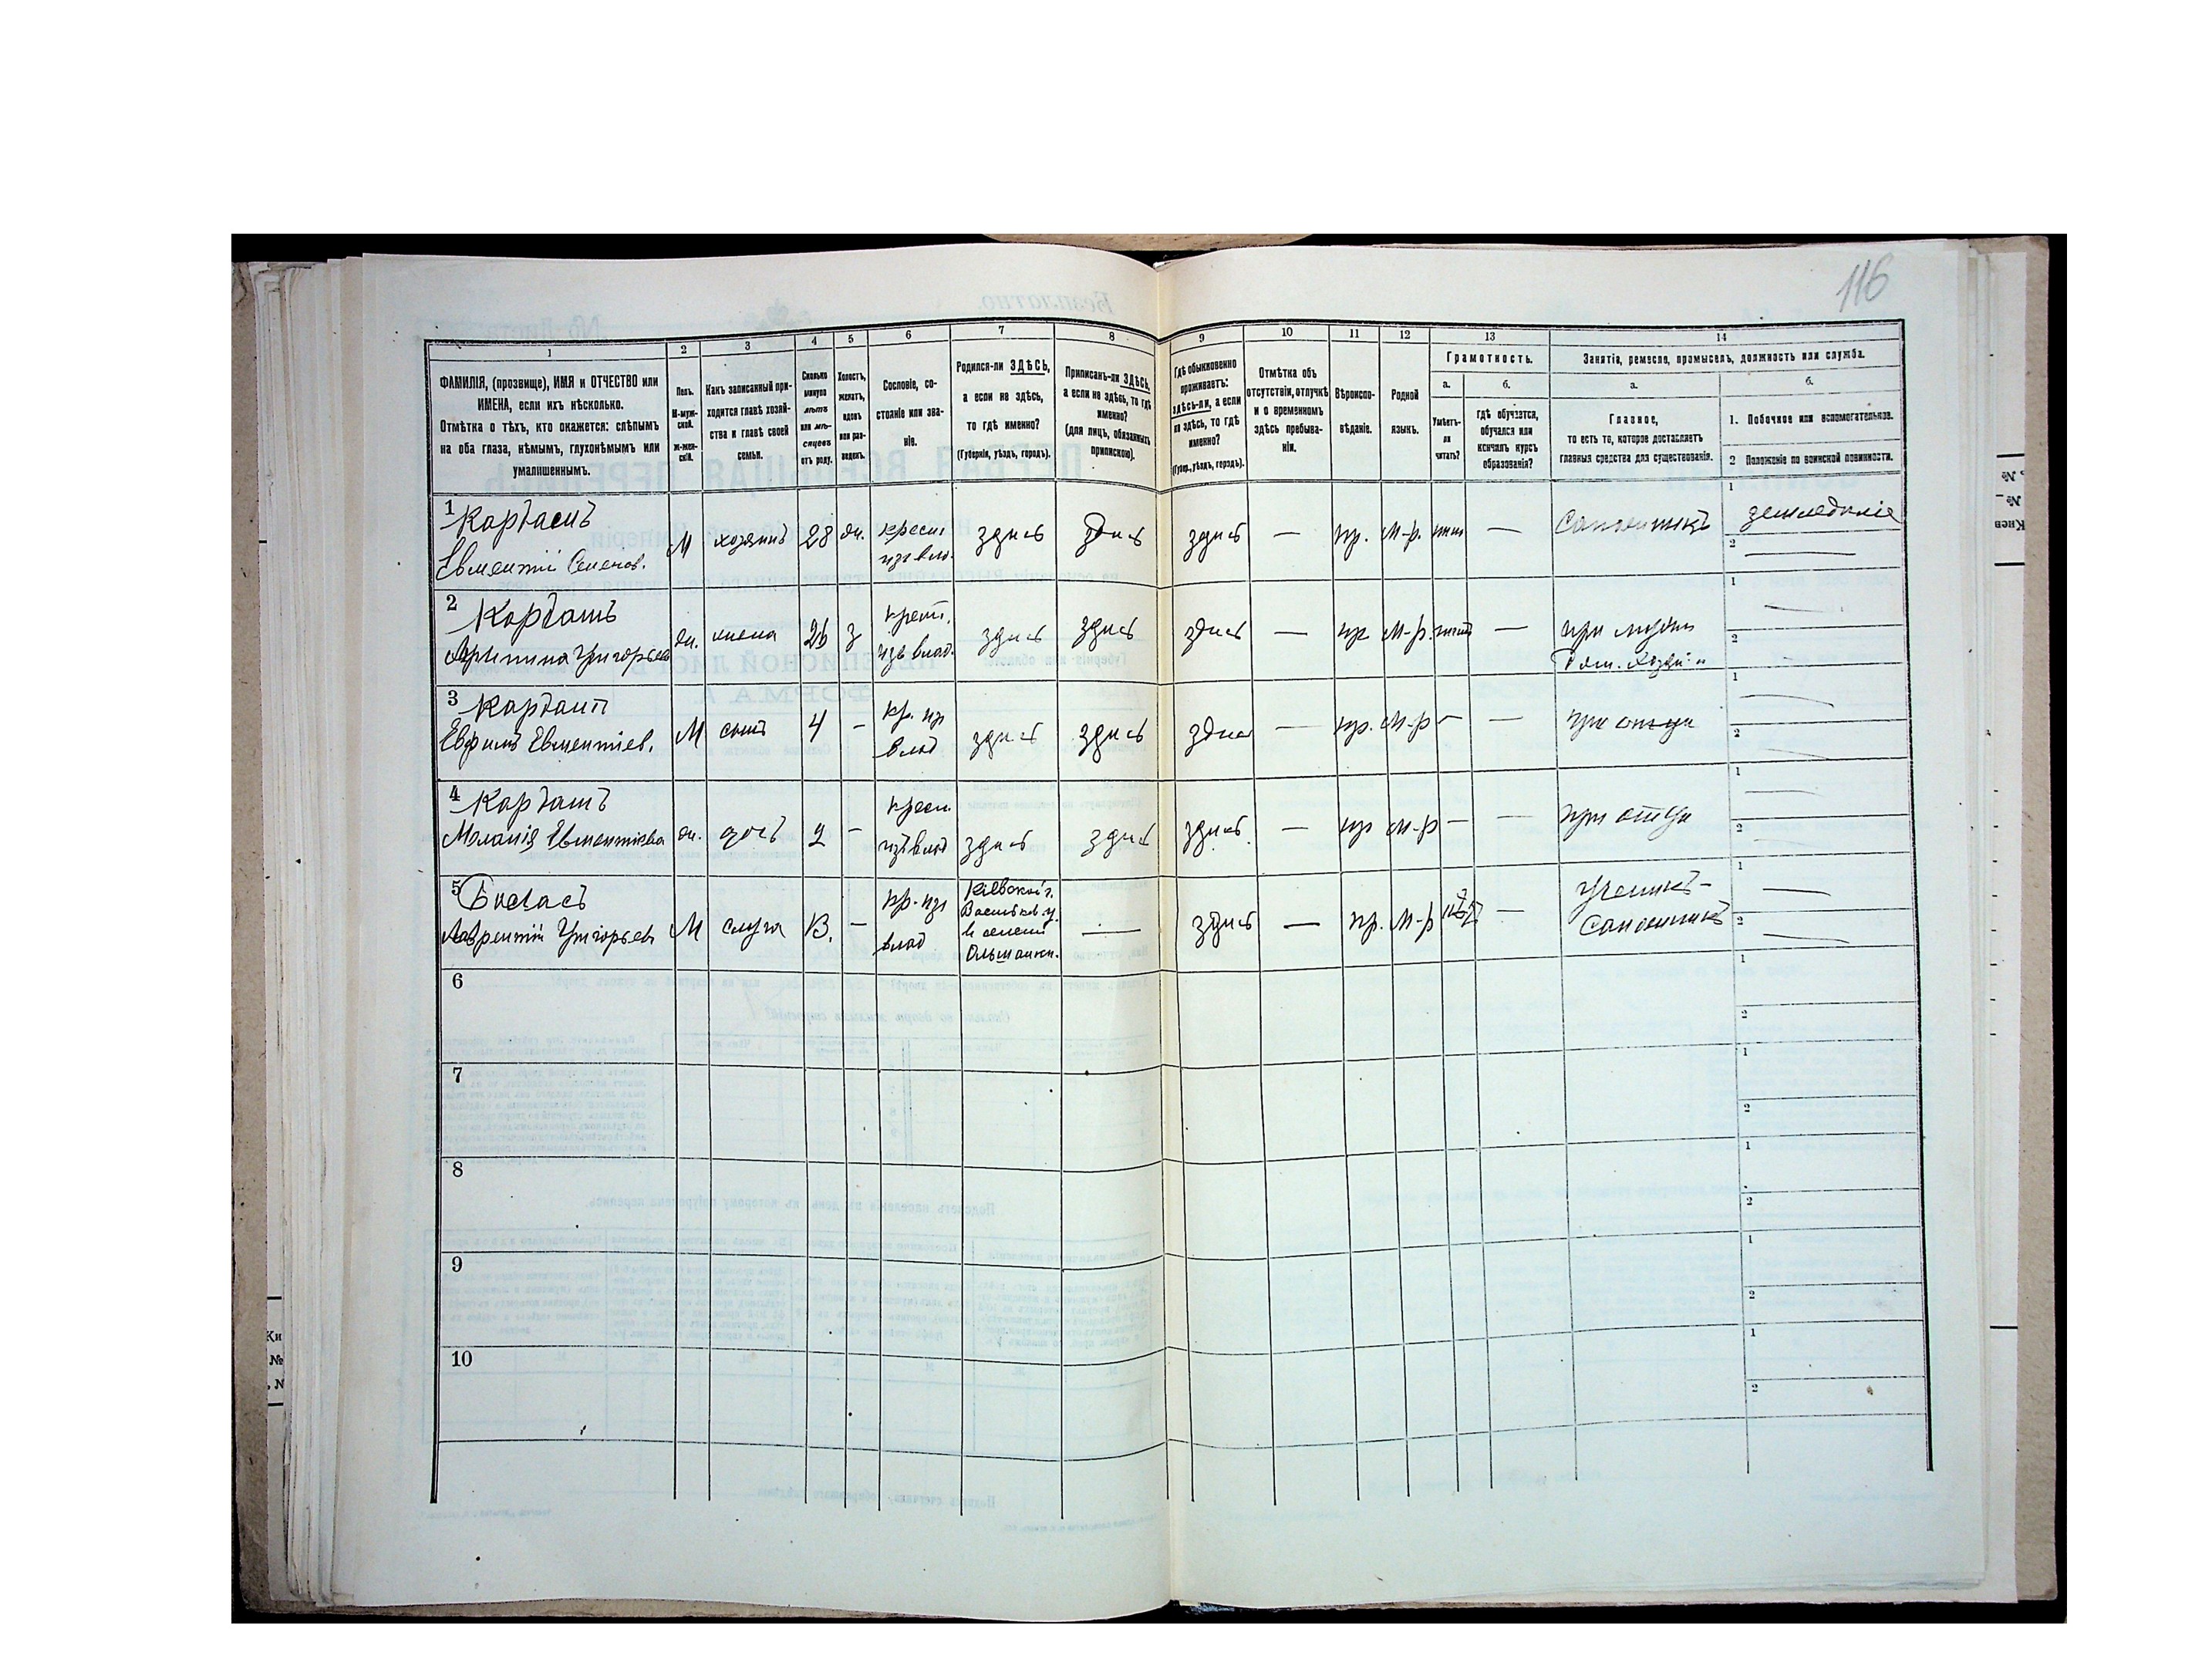 116
1
2
3
4
5
6
7
8
9
10
11
12
13
14
ФАМИЛІЯ, (прозвище), ИМЯ и ОТЧЕСТВО или
ИМЕНА, если ихъ нѣсколько.
Отмѣтка о тѣхъ, кто окажется: слѣпымъ
на оба глаза, нѣмымъ, глухонѣмымъ или
умалишеннымъ.
Полъ.
М-муж-
ской.
Ж-жен-
скій.
Какъ записанный при-
ходится главѣ хозяй-
ства и главѣ своей
семьи.
Сколько
минуло
лѣтъ
или мѣ-
сяцевъ
отъ роду.
Холостъ,
женатъ,
вдовъ
или раз-
веденъ.
Сословіе, со-
стояніе или зва-
ніе.
Родился-ли ЗДѢСЬ,
а если не здѣсь,
то гдѣ именно?
(Губернія, уѣздъ, городъ).
Приписанъ-ли ЗДѢСЬ,
а если не здѣсь, то гдѣ
именно?
(для лицъ, обязанныхъ
припискою).
Гдѣ обыкновенно
проживаетъ:
здѣсь-ли, а если
не здѣсь, то гдѣ
именно?
(Губер., уѣздъ, городъ).
Отмѣтка объ
отсутствіи, отлучкѣ
и о временномъ
здѣсь пребыва-
ніи.
Вѣроиспо-
вѣданіе.
Родной
языкъ.
Грамотность.
а.
б.
Умѣетъ-
ли
читать?
гдѣ обучается,
обучался или
кончилъ курсъ
образованія?
Занятіе, ремесло, промыселъ, должность или служба.
а.
б.
Главное,
то есть то, которое доставляетъ
главныя средства для существованія.
1. Побочное или вспомогательное.
2 Положеніе по воинской повинности.
1 Кардашъ
Евментій Семенов.
М хозяинъ 28 жн. крест. изъ влад. здѣсь здѣсь здѣсь — пр. М-р. — Сапожникъ
1 земледѣліе
2 —
2 Кардашъ
Григорьев
жн. жена 26 з крест. изъ влад. здѣсь здѣсь здѣсь — пр М-р. — при мужѣ
дом. хозяй.
1 —
2
3 Кардашъ
Евфимъ Евментіев.
М сынъ 4 — кр. из влад здѣсь здѣсь здѣсь — пр. М-р — — при отцѣ
1 —
2 —
4 Кардашъ
Меланія Евментіева
жн. дочь 2 — крест. изъ влад здѣсь здѣсь здѣсь — пр М-р — — при отцѣ
1 —
2 —
5
Лаврентій Григорьев
М слуга 13. — кр. из влад
Кіевской г.
Васильков. у.
в селеніи
Ольшанки.
— здѣсь — пр. М-р — Ученикъ-
Сапожникъ
1 —
2 —
6
1
2
7
1
2
8
1
2
9
1
2
10
1
2